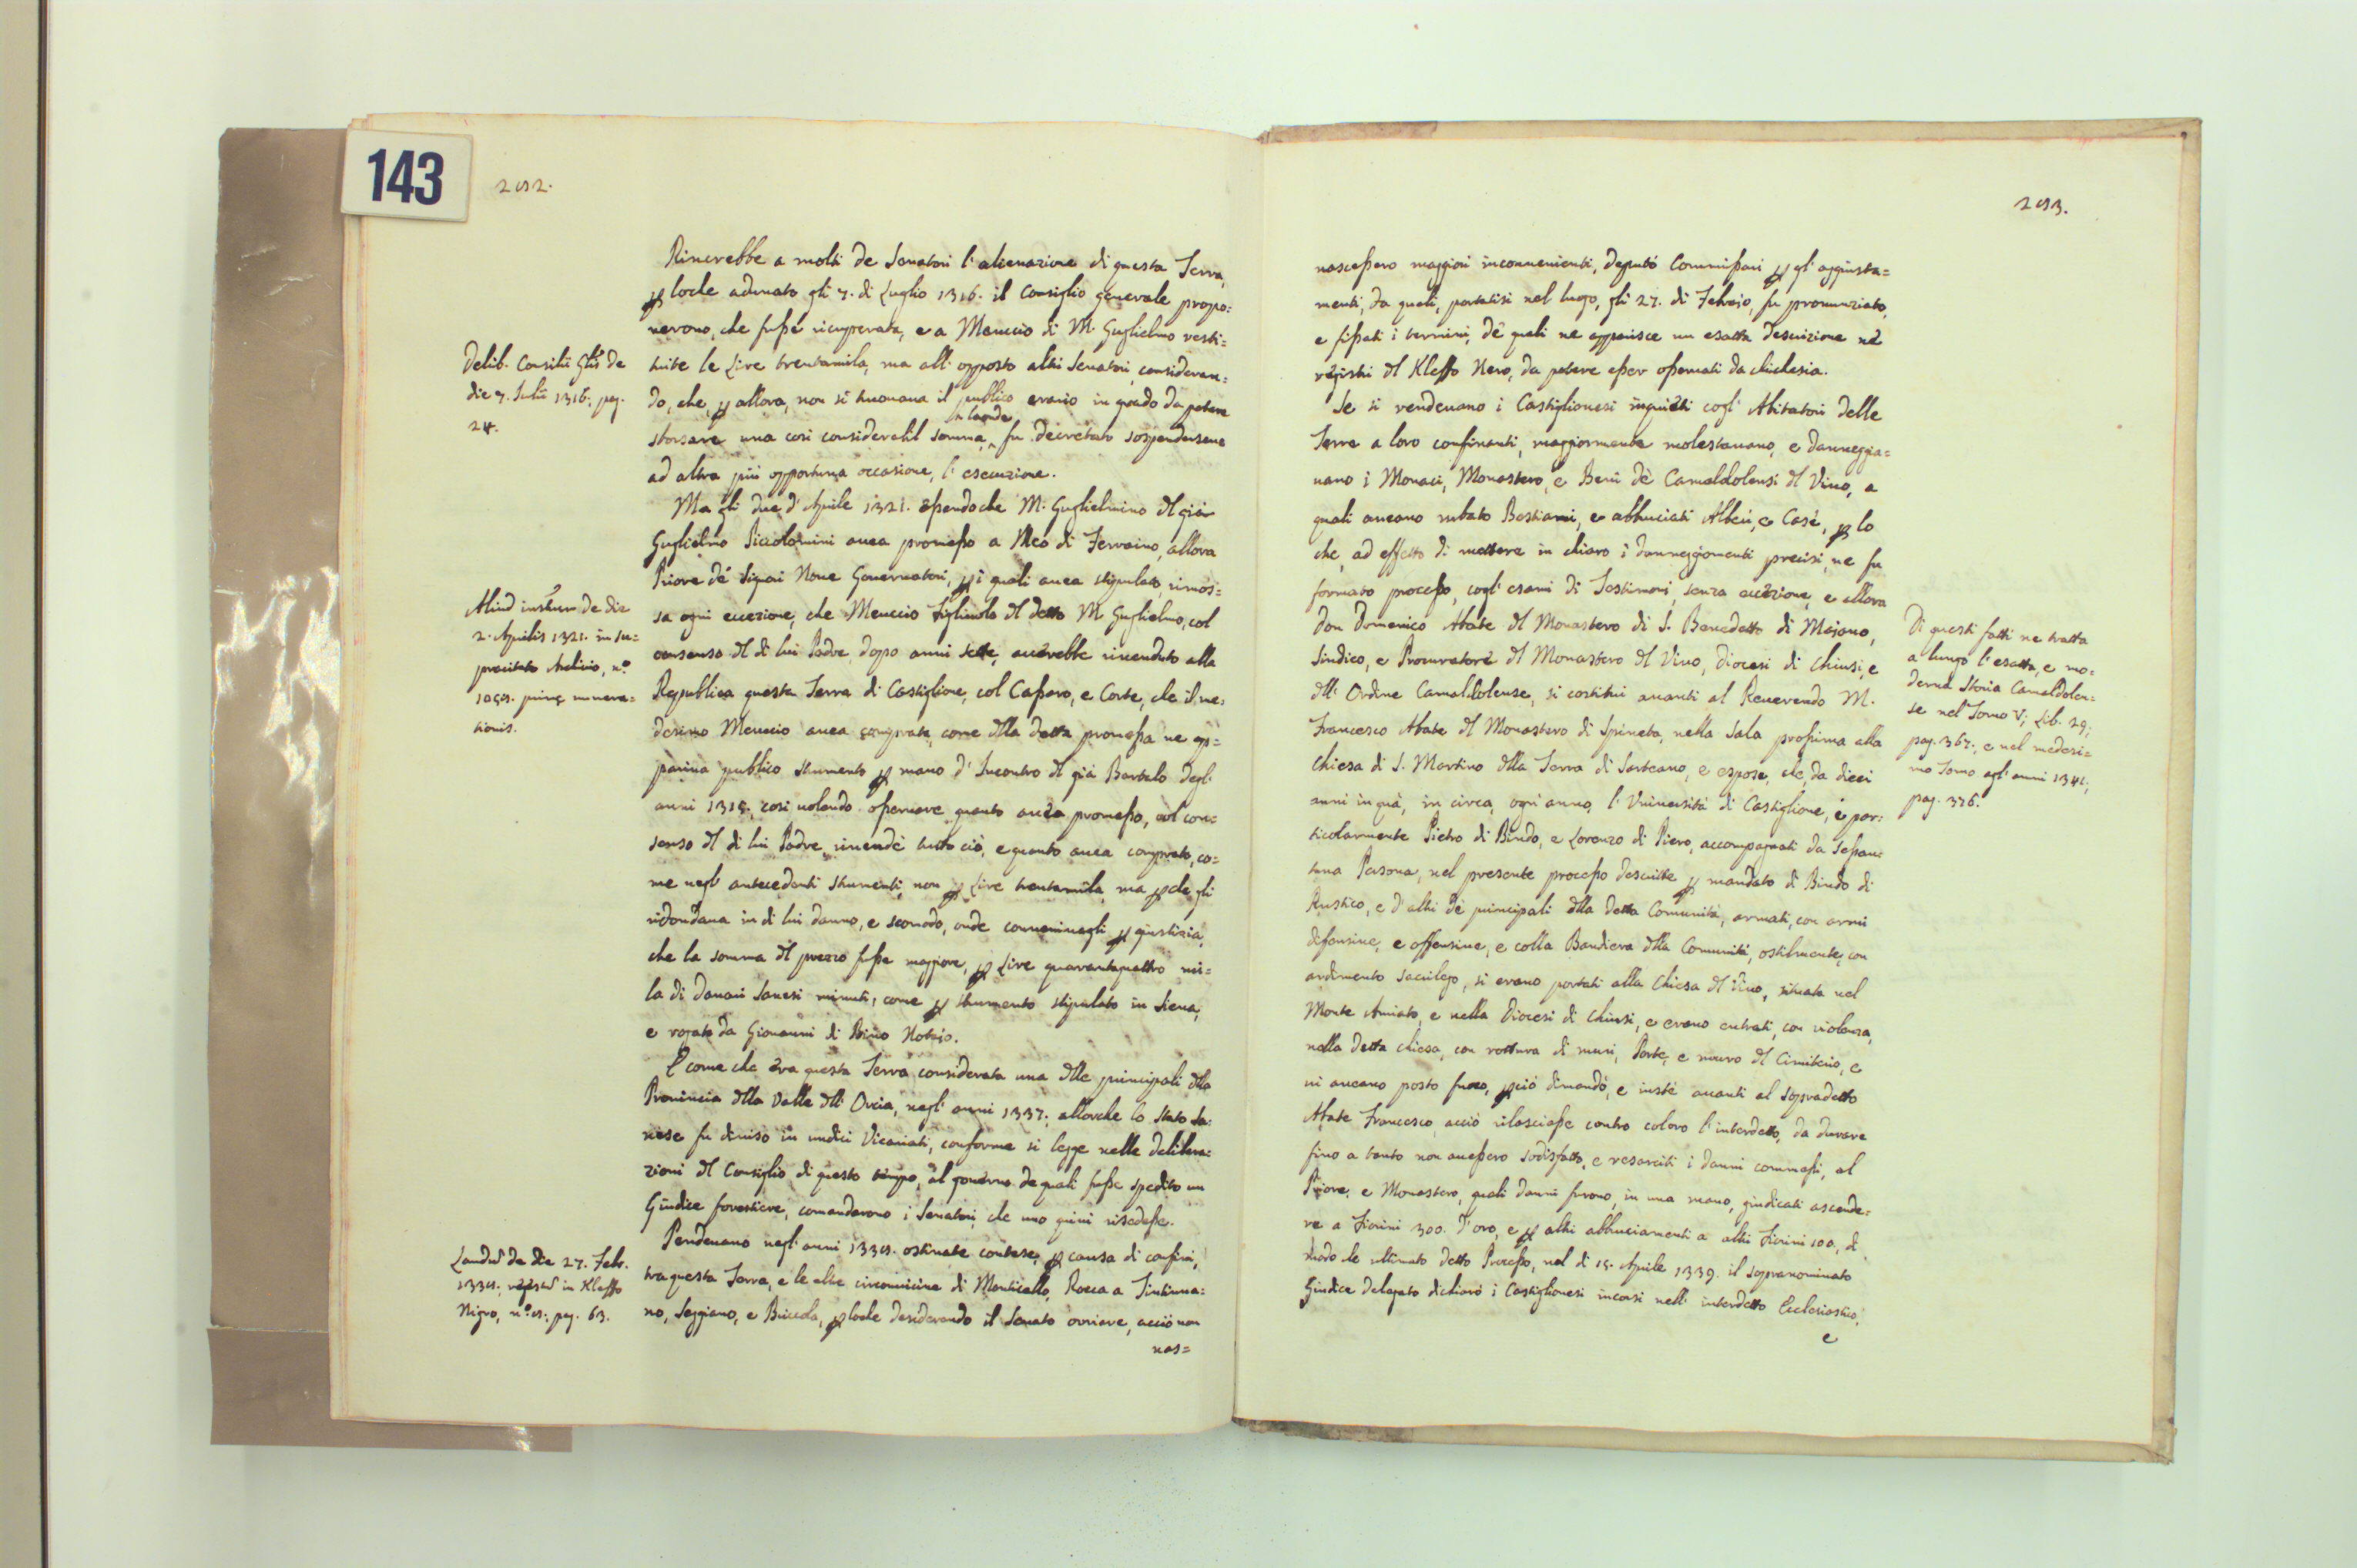 143
282.
Rincrebbe a molti de Senatori l'alienazione di questa Terra,
loche adunato gli 7. di Luglio 1316. il Consiglio generale propo=
nerono, che fusse ricuperata, e a Meuccio di M. Guglielmo resti=
tuite le Lire trentamila, ma all'opposto altri Senatori, consideran=
do, che, p allora, non si trouaua il publico erario in grado da potere
la laonde
sborsare una così considerabil somma, fu decretato sospendersene
ad altra più opportuna occasione, l'esecuzione.
Delib. Consilii Glis de
die 7. Julii 1316. pag.
24.
Ma gli due d'Aprile 1321. essendoche M. Guglielmino dl già
Guglielmo Piccolomini auea promesso a Meo di Ferraino, allora
Priore de Signori Noue Gouernatori, p i quali auea stipulato, rimos=
sa ogni eccezione, che Meuccio Figliuolo dl detto M. Guglielmo, col
consenso dl di lui Padre, dopo anni sette, auerebbe riuenduto alla
Republica questa Terra di Castiglione, col Cassero, e Corte, che il me=
desimo Meuccio auea comprata, come dlla detta promessa ne ap=
pariua publico strumento p mano d'Incontro dl già Bartalo degl'
anni 1315, così uolendo osseruare quanto auea promesso, col con=
senso dl di lui Padre, riuendé tutto ciò, e quanto auea comprato, co=
me negl'antecedenti strumenti, non p Lire trentamila, ma pche gli
ridondaua in di lui danno, e scomodo, onde conueniuagli p giustizia,
che la somma dl prezzo fusse maggiore, p Lire quarantaquattro mi=
la di danari Sanesi minuti, come p strumento stipulato in Siena,
e rogato da Giouanni di Bino Notaio.
Aliud instrum de die
2. Aprilis 1321. in su=
precitato Archivio, no
numera=
tionis.
E come che era questa Terra considerata una dlle principali dlla
Prouincia dlla Valle dll'Orcia, negl'anni 1337. allorche lo Stato Sa=
nese fu diuiso in undici Vicariati, conforme si legge nelle delibera=
zioni dl Consiglio di questo tempo, al gouerno de quali fusse spedito un
Giudice forestiere, comanderono i Senatori, che uno quiui risedesse.
Pendeuano negl'anni 1338. ostinate contese, p causa di confini,
tra questa Terra, e le altre circonuicine di Monticello, Rocca a Tintinna=
no, Seggiano, e Briccola, p loche desiderando il Senato ouuiare, acciò non
nas=
Laudum de die 27. Febr.
1338. in Kleffo
Nigro, no 8. pag. 63.
283.
nascessero maggiori inconuenienti, deputò Commissari p gl'aggiusta=
menti, da quali, portatisi nel luogo, gli 27. di Febraio, fu pronunziato,
e fissati i termini, de quali ne apparisce un esatta descrizione ne
registri dl Kleffo Nero, da potere esser osseruati da chichesia.
Se si rendeuano i Castiglionesi inquieti cogl'Abitatori delle
Terre a loro confinanti, maggiormente molestauano, e danneggia=
uano i Monaci, Monastero, e Beni de Camaldolensi dl Viuo, a
quali aueano rubato Bestiami, e abbruciati Alberi, e Case, p lo
che, ad effetto di mettere in chiaro i danneggiamenti precisi, ne fu
formato processo, cogl'esami di Testimoni, senza eccezione, e allora
Don Domenico Abate dl Monastero di S. Benedetto di Majano,
Sindico, e Procuratore dl Monastero dl Viuo, diocesi di Chiusi, e
dll'Ordine Camaldolense, si costituì auanti al Reuerendo M.
Francesco Abate dl Monastero di Spineta, nella Sala prossima alla
Chiesa di S. Martino dlla Terra di Sarteano, e espose, che, da dieci
anni in quà, in circa, ogni anno, l'Vniuersità di Castiglione, e par=
ticolarmente Pietro di Bindo, e Lorenzo di Piero, accompagnati da sessan=
tuna Persona, nel presente processo descritte p mandato di Bindo di
Rustico, e d'altri de principali dlla detta Comunità, armati, con armi
difensiue, e offensiue, e colla Bandiera dlla Comunità, ostilmente, con
ardimento sacrilego, si erano portati alla Chiesa dl Viuo, situata nel
Monte Amiato, e nella Diocesi di Chiusi, e erano entrati, con violenza,
nella detta Chiesa, con rottura di muri, Porte, e muro dl Cimiterio, e
ui aueano posto fuoco, p ciò dimandò, e insté auanti al sopradetto
Abate Francesco, acciò rilasciasse contro coloro l'interdetto, da durare
fino a tanto non auessero sodisfatto, e resarciti i danni commessi, al
Priore, e Monastero, quali danni furono, in una mano, giudicati ascende=
re a Fiorini 300. d'oro, e p altri abbruciamenti a altri Fiorini 100., di
modo che ultimato detto Processo, nel dì 15. Aprile 1339. il sopranominato
Giudice delegato dichiarò i Castiglionesi incorsi nell'interdetto Ecclesiastico,
e
Di questi fatti ne tratta
a lungo l'esatta, e mo=
derna Storia Camaldolen=
se nel Tomo V, Lib. 29.
pag. 367., e nel medesi=
mo Tomo agl'anni 1341.,
pag. 336.